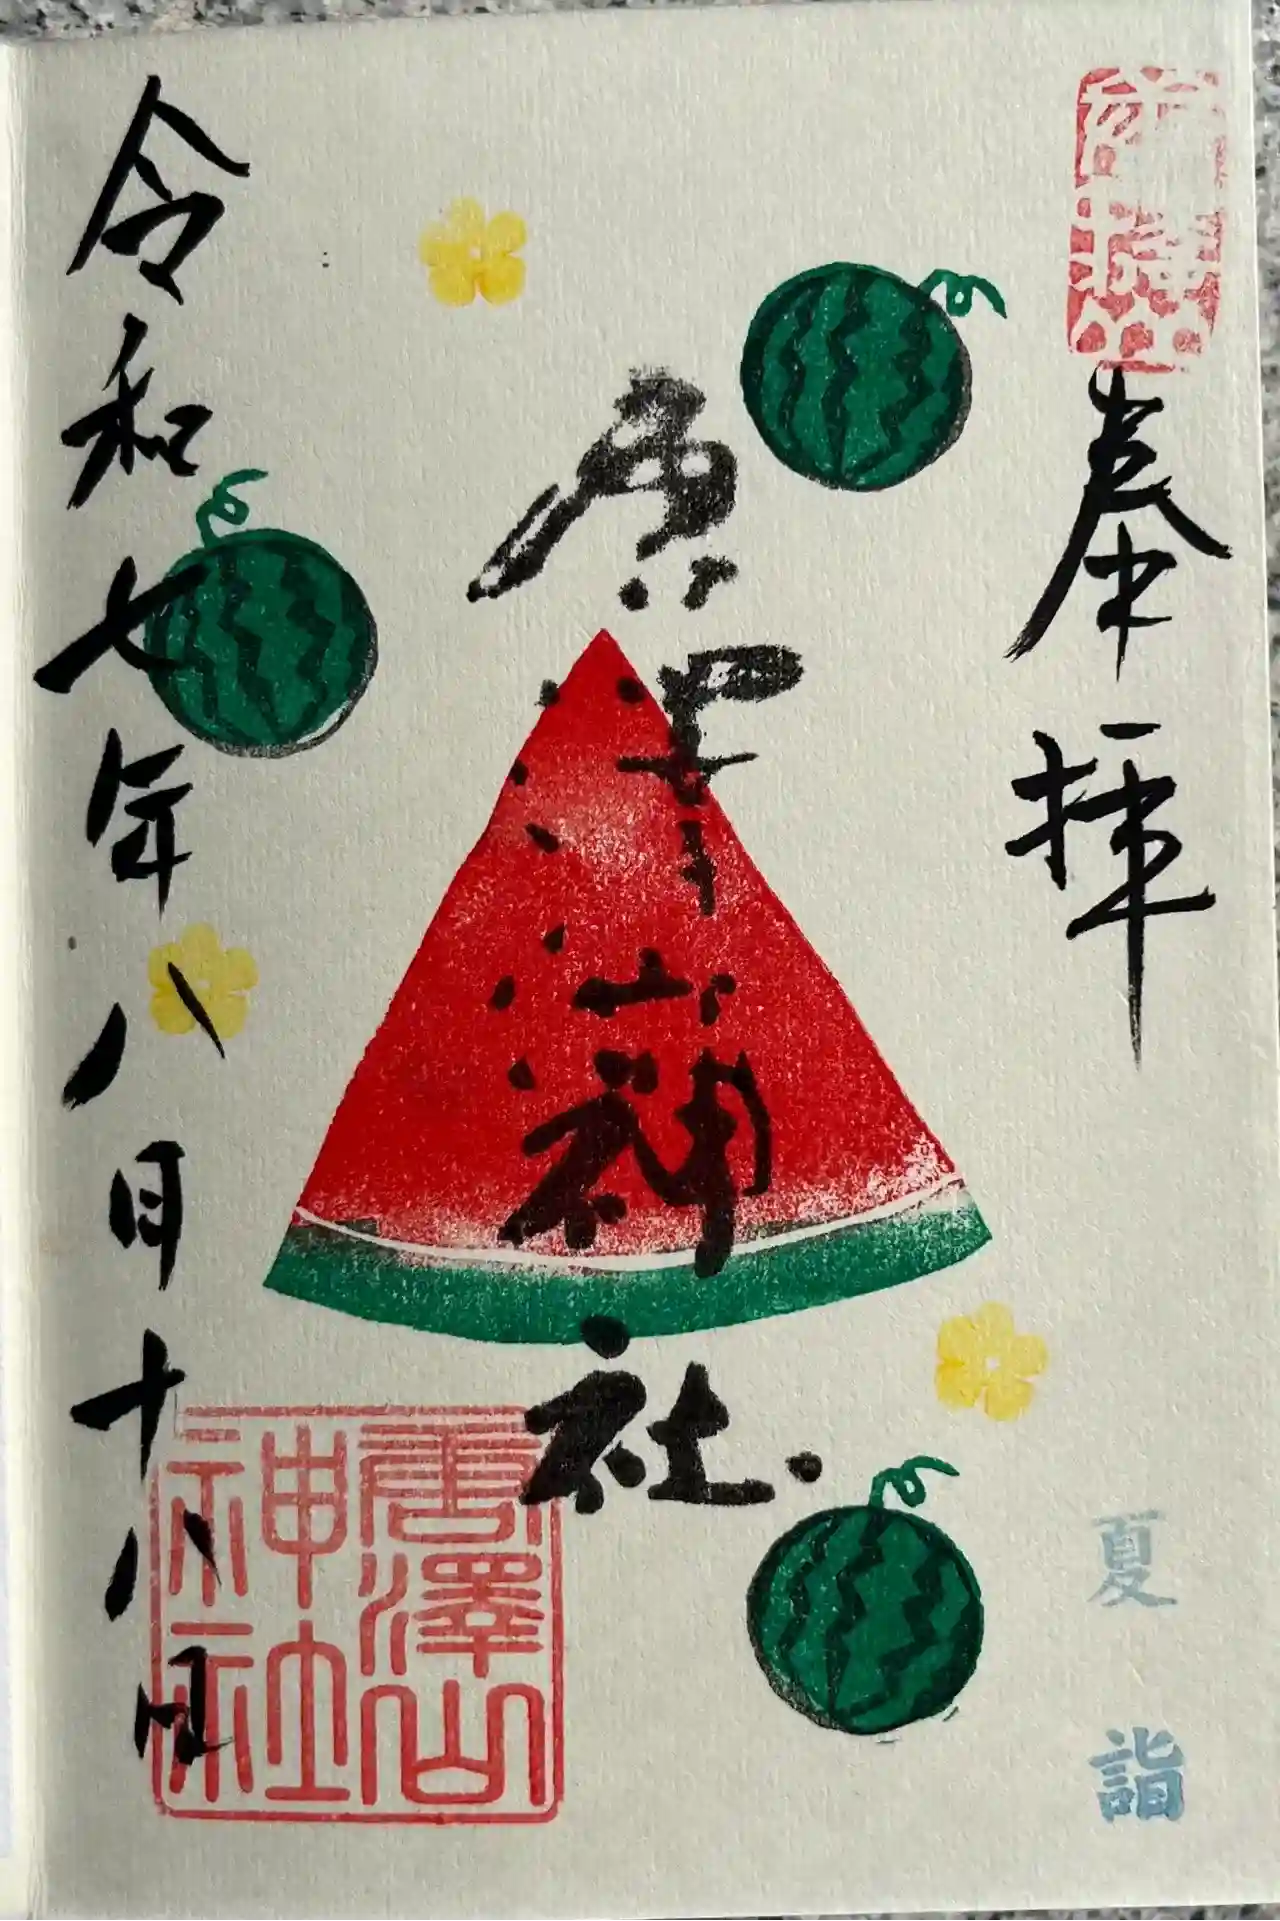 奉拝
夏詣
唐澤山神社
唐澤山
神社
令和七年八月十八日